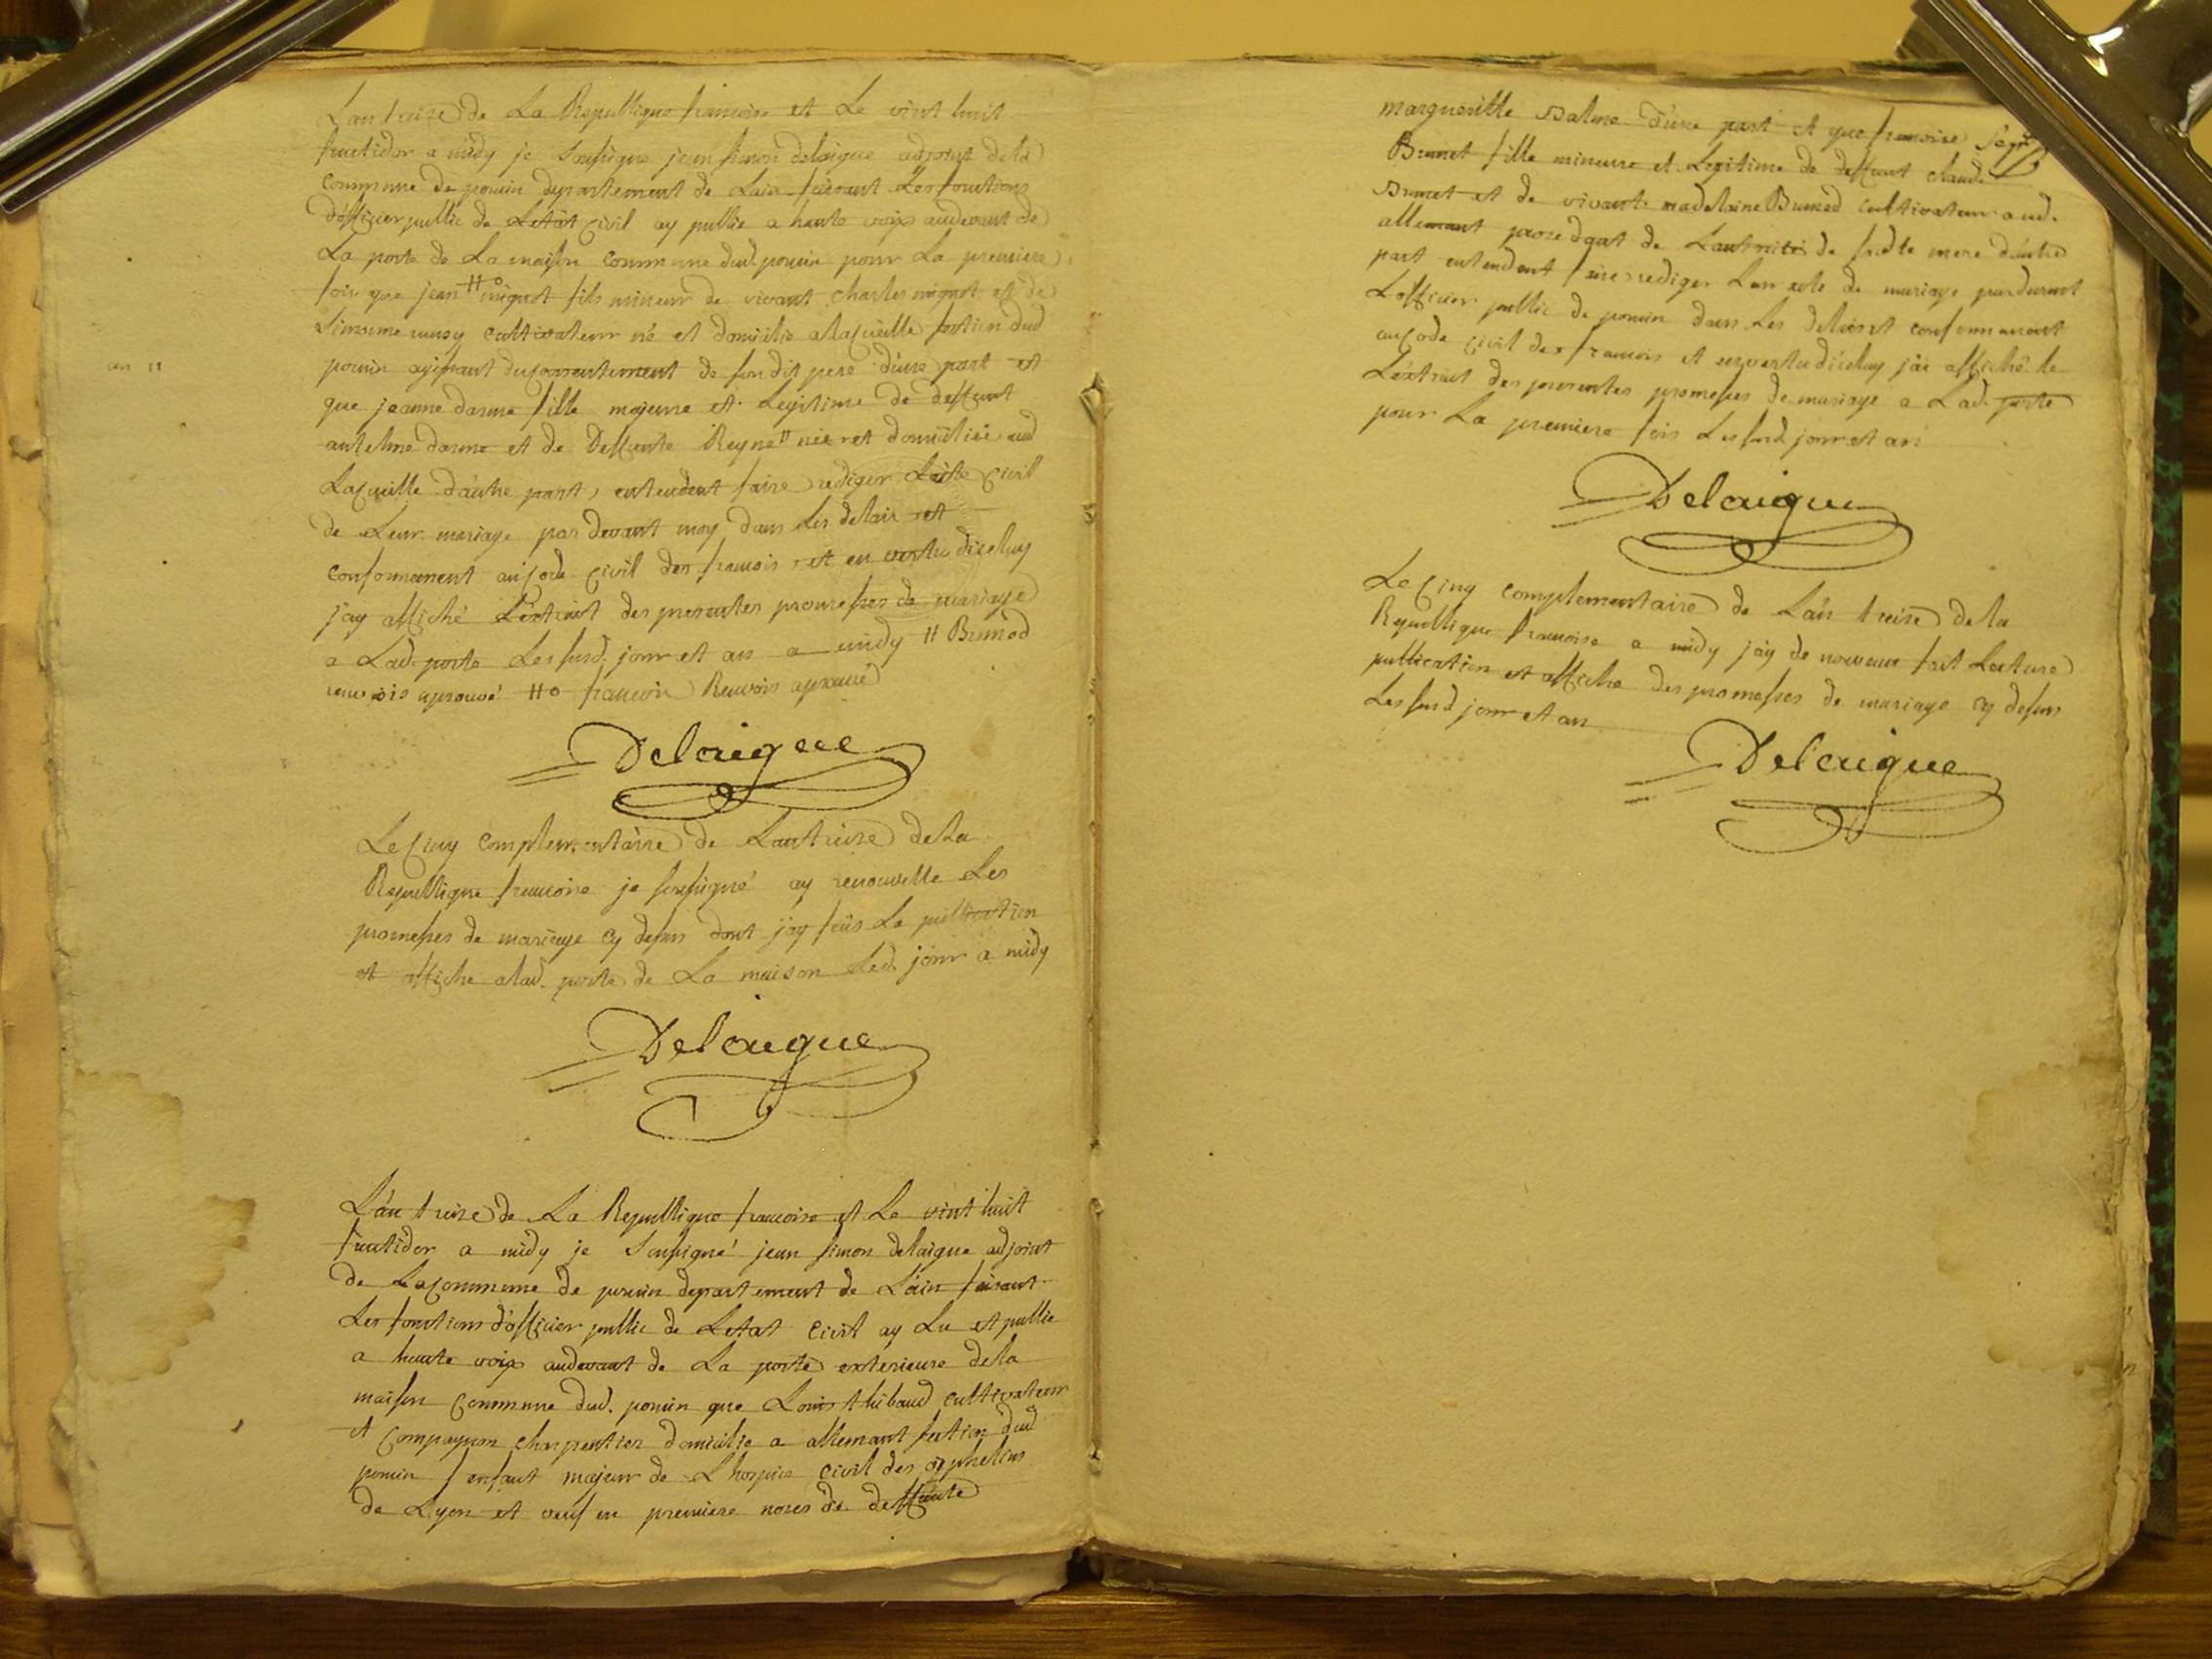 L'an treize de La Republique francoise et Le vint huit
fructidor a midy je soussigne jean simon delaigue adjoint de la
commune de poncin departement de Lain faisant Les fonctions
d'officier public de Letat civil ay publie a haute voix au devant de
La porte de La maison commune dud. poncin pour La premiere
fois que jean H° mignot fils mineur de vivant charles mignot et de
cultivateur né et domicilie a Lacueille section dud
poncin agissant du consentement de son dit pere d'une part et
an 11
que jeanne darme fille majeure et Legitime de deffunt
antelme darme et de Deffunte Reyne " née et domiciliée aud
Lacueille d'autre part, entendent faire rediger Lacte civil
de Leur mariage par devant moy dans Les delais et
conformement au code civil des francois et en vertu diceluy
j'ay affiché L'extrait des presentes promesses de mariage
a Lad. porte Les susd. jour et an a midy " Brunod
renvois aprouvé H° francois Renvois aprouvé
Delaigue
Le cinq complementaire de Lan treize de La
Republique francoise je soussigné ay renouvelle Les
promesses de mariage cy dessus dont j'ay fais La publication
et affiche a lad. porte de La maison Led. jour a midy
Delaigue
L'an treize de La Republique francoise et Le vint huit
fructidor a midy je Soussigné jean simon delaigue adjoint
de La commune de poncin departement de L'ain faisant
Les fonctions d'officier public de Letat civil ay Lu et publie
a haute voix au devant de La porte exterieure de la
maison commune dud. poncin que Louis thibaud cultivateur
et compagnon charpentier domicilie a allemant section dud
poncin enfant majeur de L'hospice civil des orphelins
de Lyon et veuf en premiere noces de deffunte
margueritte Balme d'une part et que francoise
Brunet fille mineure et Legitime de deffunt claude
Brunet et de vivante madelaine Brunod cultivateur aud.
allemant procedant de Lautorité de sadte mere d'autre
part entendent faire rediger Leur acte de mariage pardevant
L'officier public de poncin dans Les delais et conformement
au code civil des francois et en vertu diceluy j'ai affiché le
L'extrait des presentes promesses de mariage a Lad. porte
pour La premiere fois Les susd. jour et an
Delaigue
Le cinq complementaire de L'an treize de la
Republique francoise a midy j'ay de nouveau fait Lecture
publication et affiche des promesses de mariage cy dessus
Les susd jour et an
Delaigue